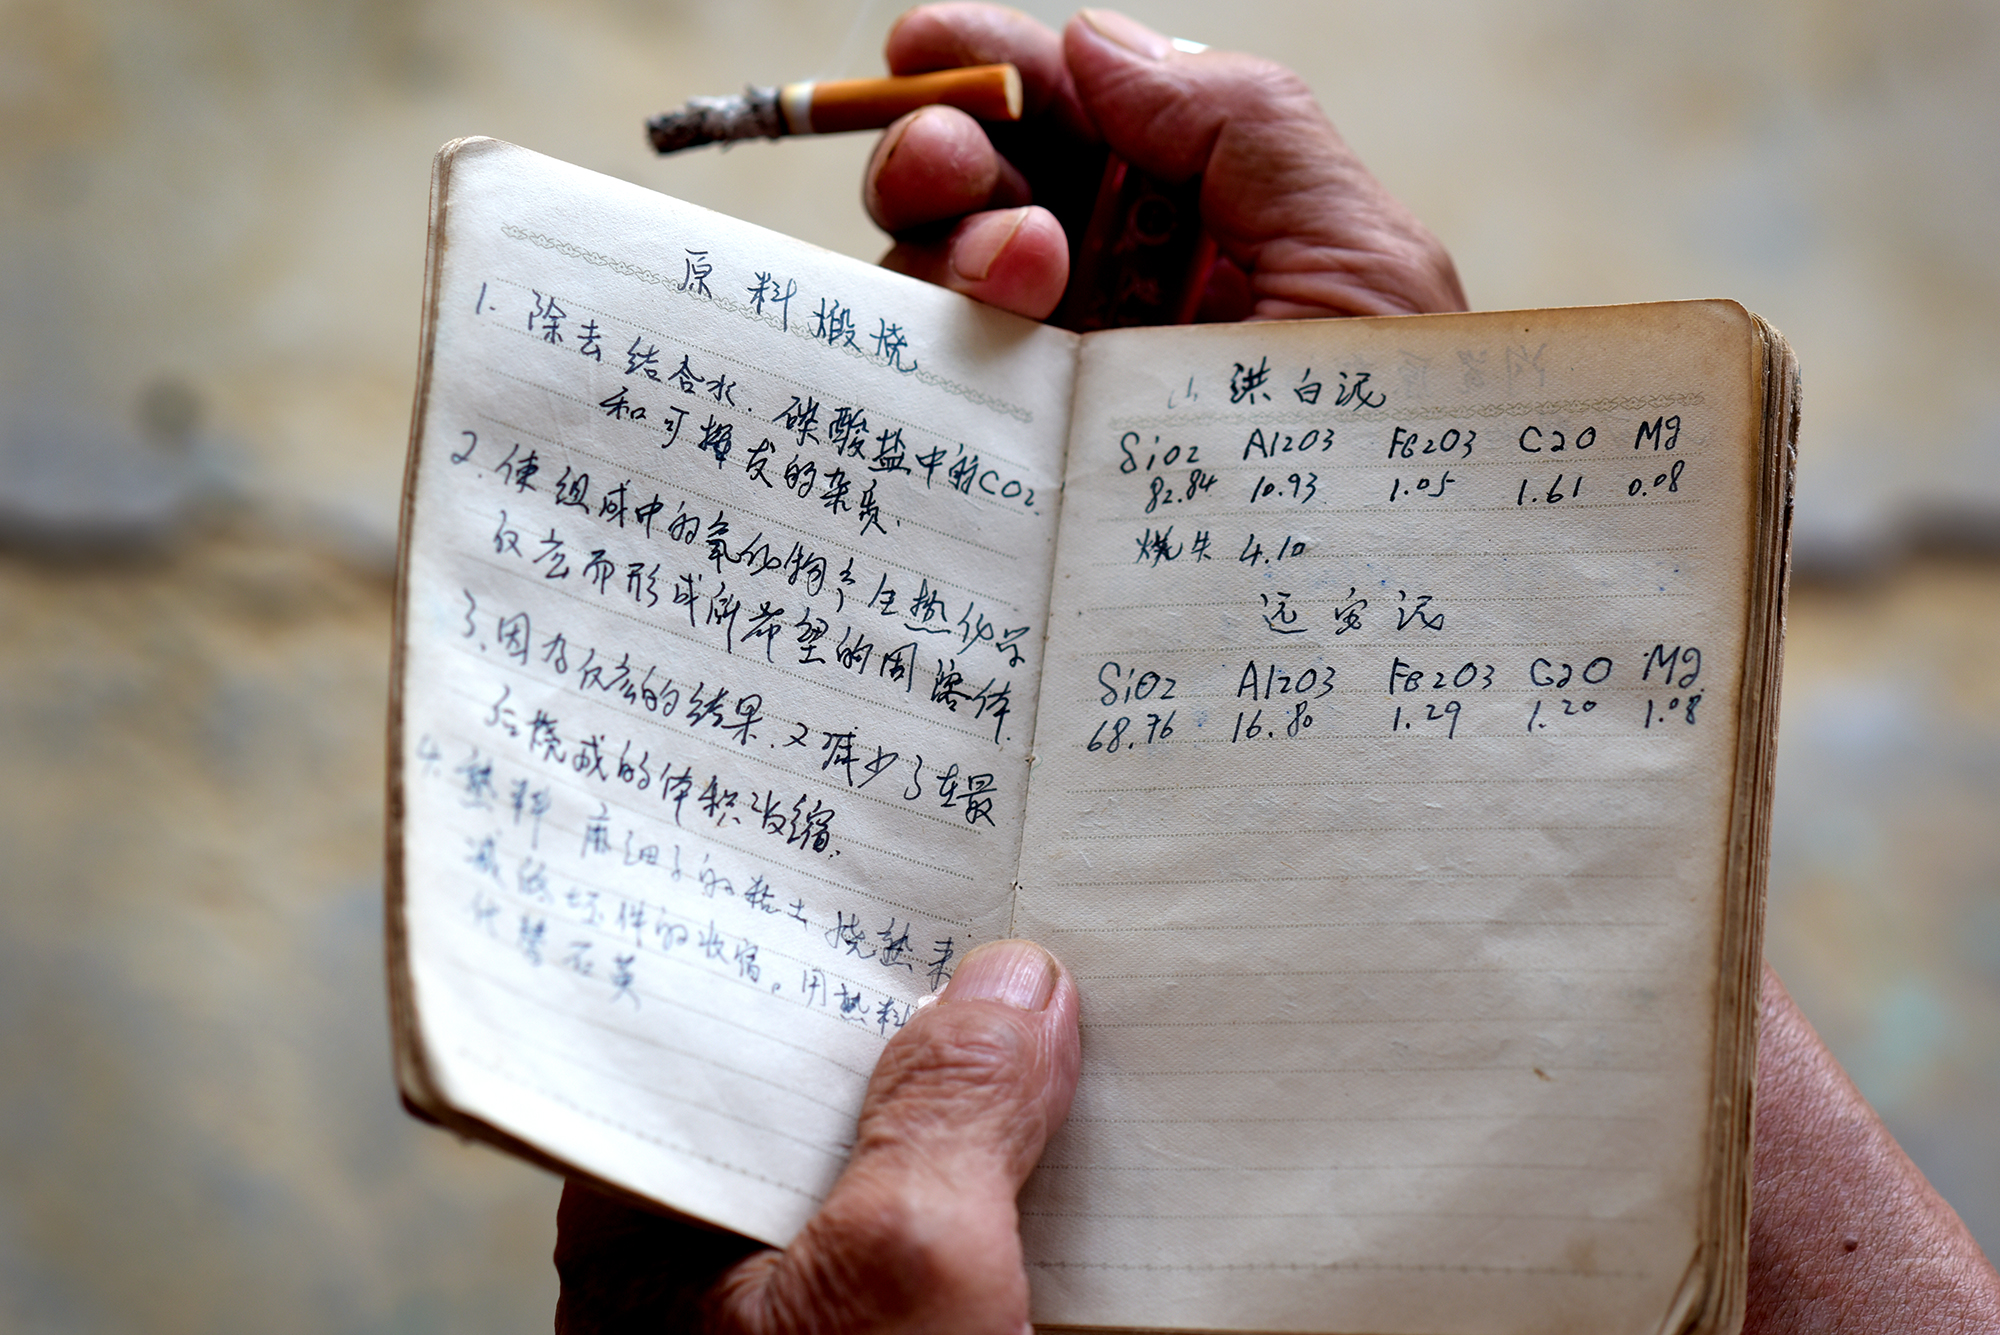 原料煅烧
1. 除去结合水. 碳酸盐中的CO2.
和可挥发的杂质.
2. 使组成中的氧化物产生热化学
反应而形成所希望的固溶体.
3. 因为反应的结果. 又减少了在最
后烧成的体积收缩.
4. 熟料 的粘土 烧熟来
减 坯件的收缩。用熟料
代替石英
洪白泥
SiO2 Al2O3 Fe2O3 CaO Mg
82.84 10.93 1.05 1.61 0.08
烧失 4.10
远安泥
SiO2 Al2O3 Fe2O3 CaO Mg
68.76 16.80 1.29 1.20 1.08